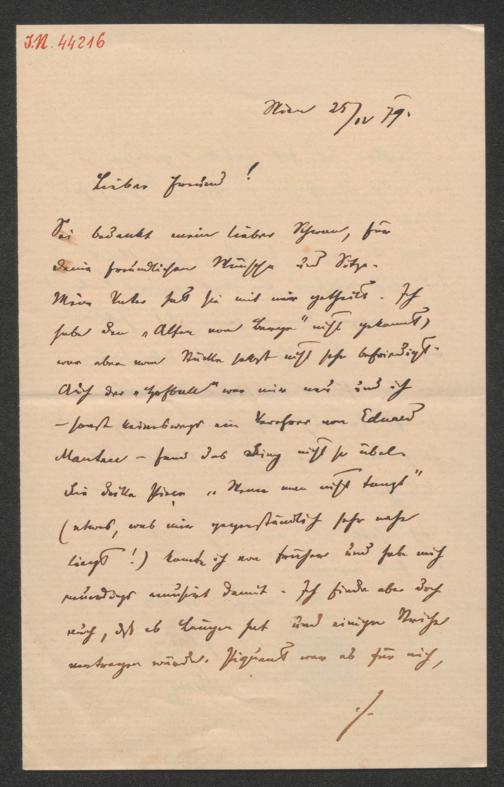 J.N. 44216
Wien 25/IV 79.
Lieber Freund!
Sei bedankt mein lieber Schwan, für
Deine freundlichen Wünsche und Sitze.
Mein Vater hat sie mit mir getheilt. Ich
habe den „Alten vom Berge" nicht gekannt,
war aber vom Stücke selbst nicht sehr befriedigt.
Auch der „Hofball" war mir neu und ich
– sonst keineswegs ein Verehrer von Eduard
Mautner – fand das Ding nicht so übel.
Die dritte Pièce „Wenn man nicht tanzt"
(etwas, was mir gegenständlich sehr nahe
liegt!) kannte ich von früher und habe mich
neuerdings amüsirt damit. Ich finde aber doch
auch, daß es Längen hat und einige Striche
vertragen würde. Piquant war es für mich,
./.